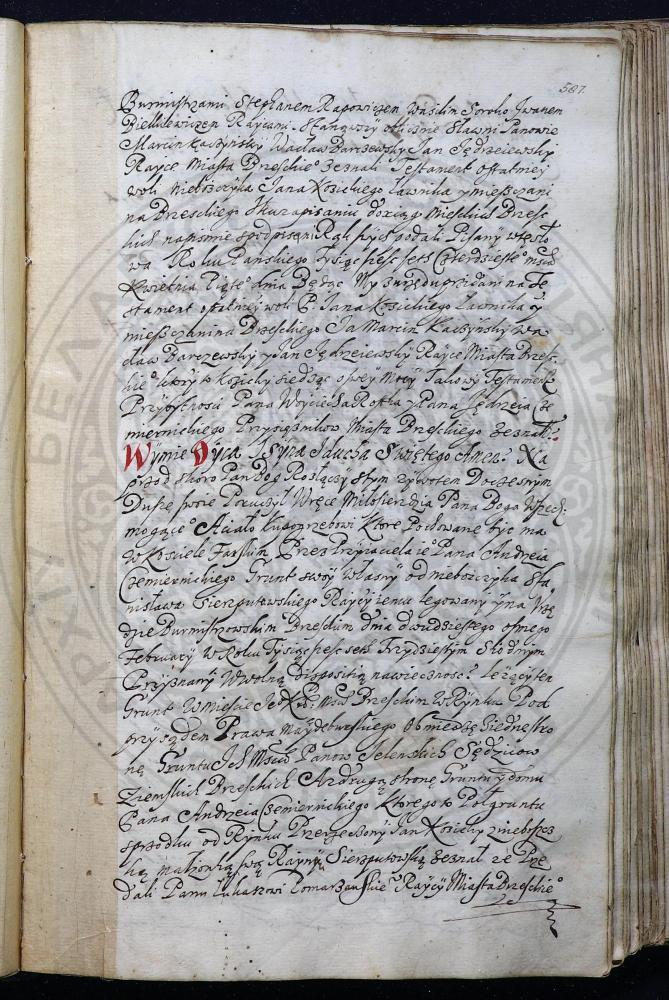 587.
Burmistrzami Stephanem Rapowiczem Wasilim Soroko Jwanem
Bielkiewiczem Raycami. Stanąwszy Sławni Panowie
Marcin Kaczyński, Wacław Barczewsky Jan Jędrzeiewsky
Rayce Miasta Brzeskieo zeznali Testament ostatniey
woli Nieboszczyka Jana Kozickiego Ławnika y mieszczani
na Brzeskiego Ku zapisaniu do xiąg Mieyskich Brzes
kich na pismie s podpisem Rąk swych podali Pisany w te sło
wa Roku Pańskiego Tysiąc szescset Czterdziesteo msca
Kwietnia Piąteo dnia Będąc My z urzędu przidani na Te
stament ostatniey woli P. Jana Kozickiego Ławnika y
mieszczanina Brzeskiego Ja Marcin Kaczyński Wa
cław Barczewsky y Jan Jędrzeiewsky Rayce Miasta Brzes
kieo, ktory to Kozicky siedząc w swey Takowy Testament
Przy bytnosci Pana Woyciecha y Pana Jędrzeia Cze
miernickiego Przysiężnikow Miasta Brzeskiego zeznał.
W Ymie Oyca I Syna I ducha Swiętego Amen. Na
przod skoro Pan Bog Rozłączy s tym zywotem Doczesnym
Duszę swoie Poruczył W ręce Miłosierdzia Pana Boga Wszech
mogąceo A ciało ku pogrzebowi Ktore Pochowane byc ma
W Kosciele Farskim Przez Przyiaciela ieo Pana Andrzeia
Czemiernickiego Grunt swoy własny od nieboszczyka Sta
nisława Sierputowskiego Raycy iemu legowany y na Vrzę
dzie Burmistrzowskim Brzeskim dnia dwudziestego osmego
February W Roku Tysiąc szescset Trzydziestym Siodmym
Przyznany W wolną dispositią na wiecznosc. Lezący ten
Grunt W Miescie Jeo Kr. Msci Brzeskim W Rynku Pod
przysądem Prawa Maydeburskiego Obmiedzę Jiednę stro
nę Gruntu Ich Msciow Panow Jelenskich Sędziców
Ziemskich Brzeskich A z drugą stronę Gruntu y domu
Pana Andrzeia Czemiernickiego Ktorego to Połgruntu
s przodku od Rynku Przerzeczony Jan Kozicky z niebosz
ką małzonką swą Sierputowską zeznał ze Prze
dali Panu Łukaszowi Raycy Miasta Brzeskieo